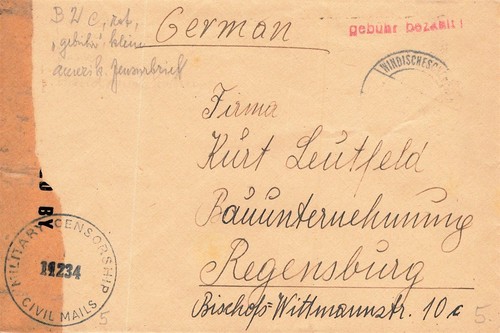 B II c, rot,
"gebühr" klein
amerik. Zensurbrief
German
gebühr bezahlt!
WINDISCHESCH
Firma
Kurt Leutfeld
Bauunternehmung
Regensburg
Bischof-Wittmannstr. 10 c
D BY
MILITARY CENSORSHIP
11234
CIVIL MAILS
5
5.